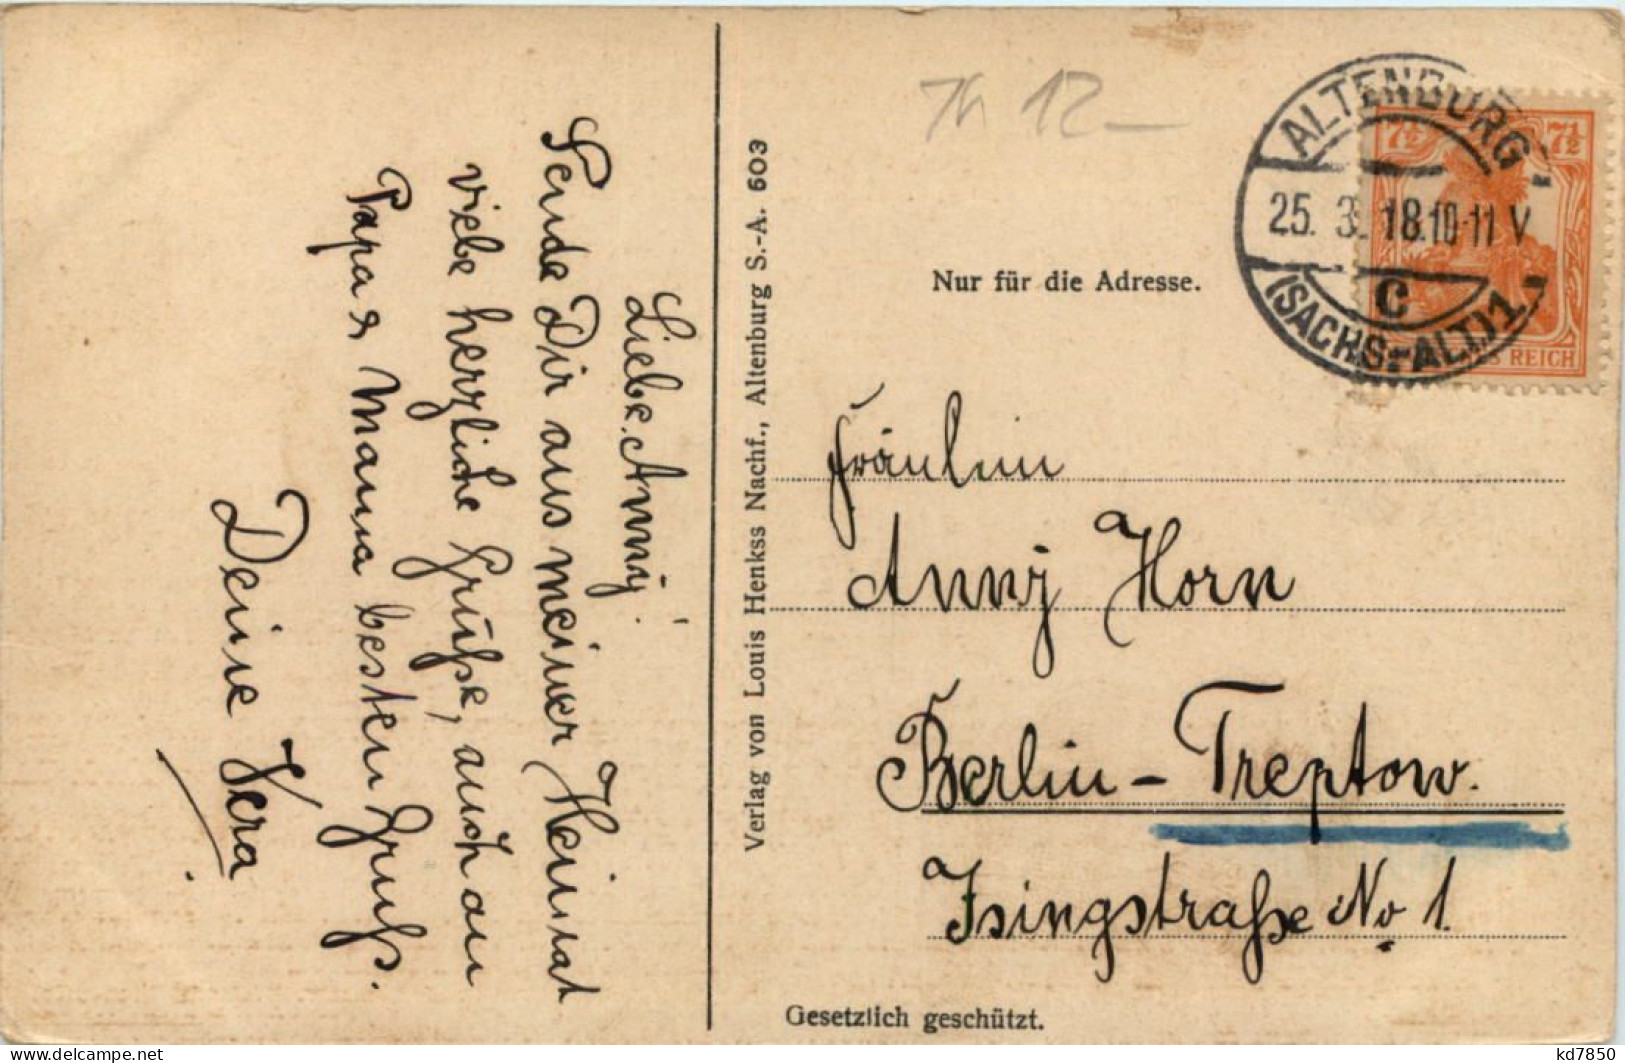 Liebe Anny!
Sende Dir aus meiner Heimat
viele herzliche Grüße, auch an
Papa & Mama besten Gruß.
Deine Vera
Verlag von Louis Henkss Nachf., Altenburg S.-A. 603
Th 12–
ALTENBURG
25. 3. 18. 10-11 V
C
(SACHS.-ALT.) 1
7½ 7½
REICH
Nur für die Adresse.
Fräulein
Anny Horn
Berlin - Treptow.
Isingstraße No 1.
Gesetzlich geschützt.
www.delcampe.net
kd7850